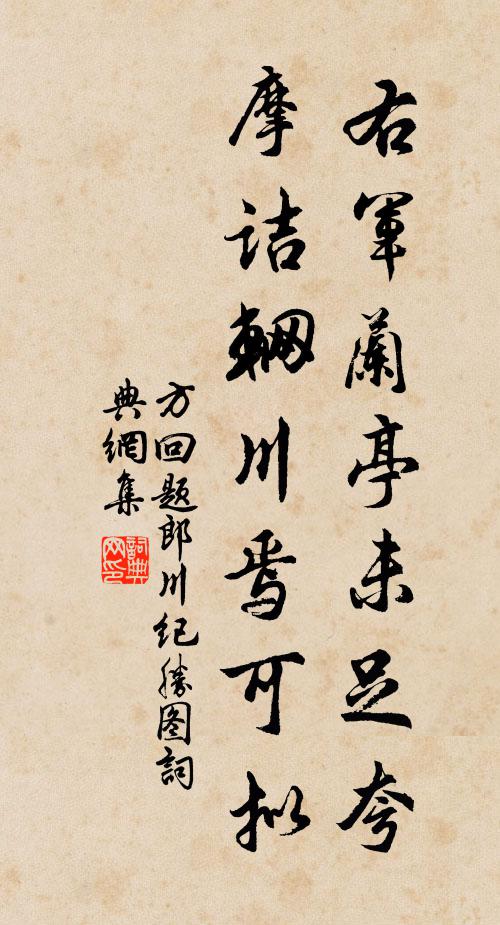 右軍蘭亭未足夸
摩詰輞川焉可拟
方回题郎川纪勝图詞
典網集
詞典网印